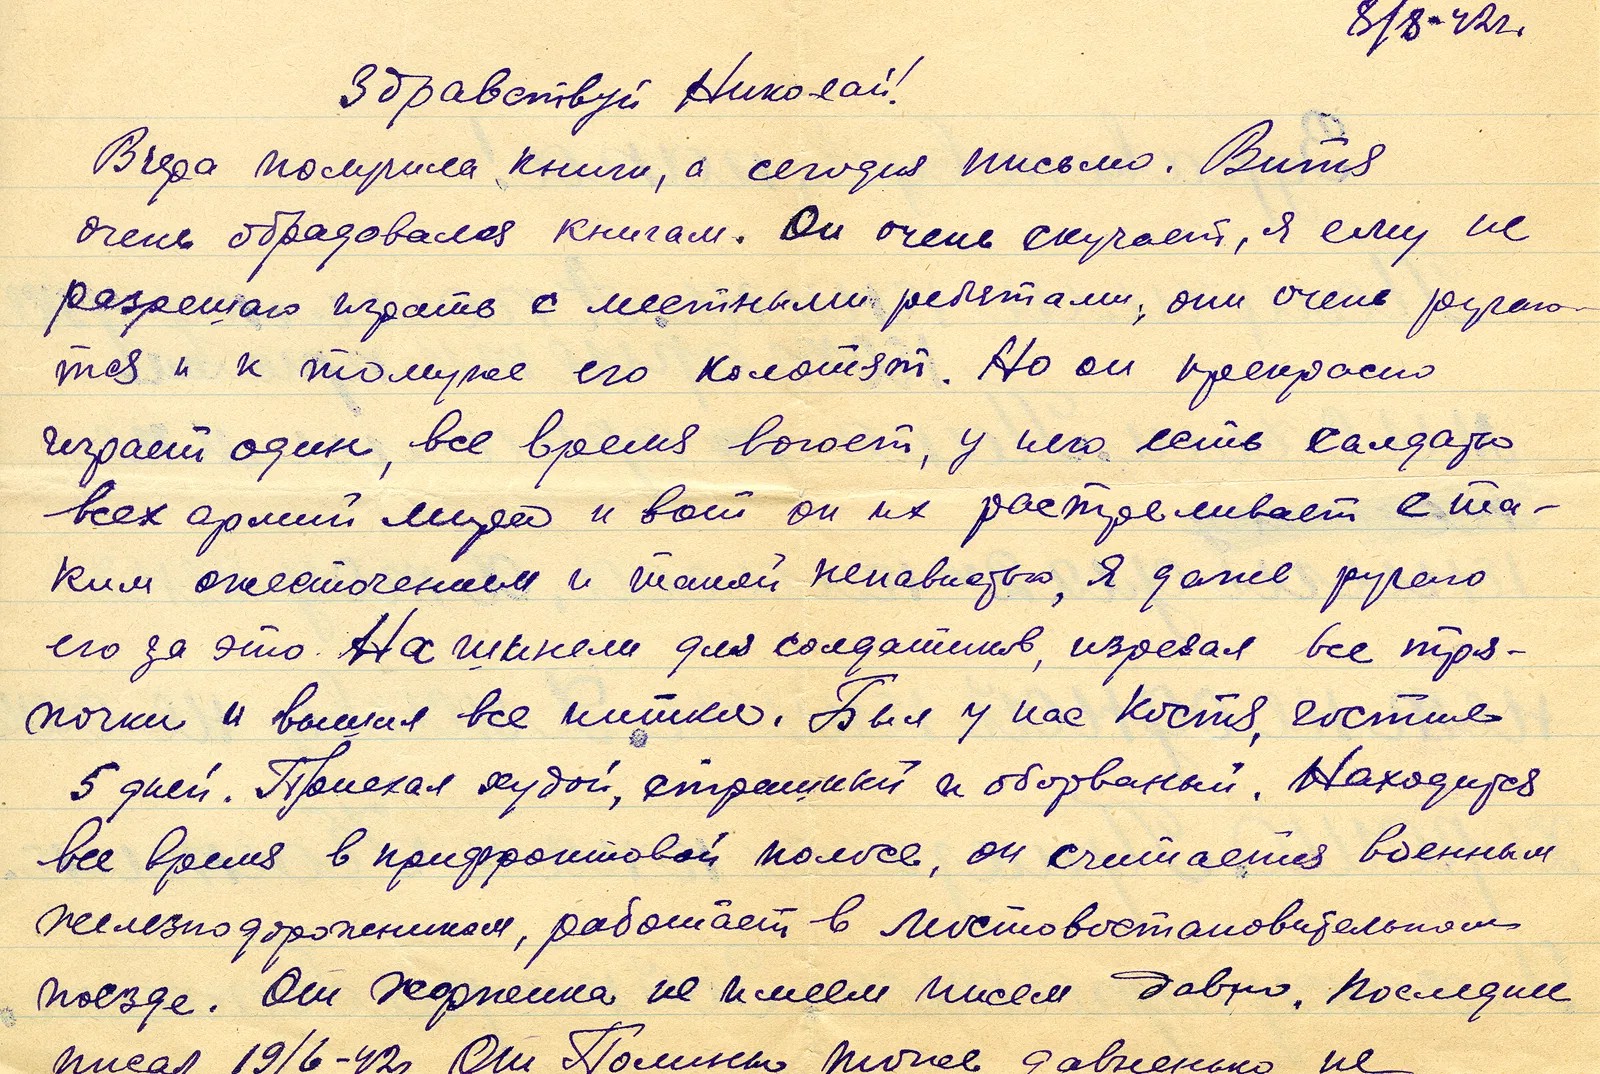 8/8-42г.
Здравствуй Николай!
Вчера получила книги, а сегодня письмо. Витя
очень обрадовался книгам. Он очень скучает, я ему не
разрешаю играть с местными ребятами, они очень ругаю-
тся и к томуже его колотят. Но он прекрасно
играет один, все время воюет, у него есть салдаты
всех армий мира и вот он их растреливает с та-
ким ожесточением и такой ненавистью, я даже ругаю
его за это. На шинели для солдатиков, изрезал все тря-
почки и вышил все нитки. Был у нас Костя, гостил
5 дней. Приехал худой, страшный и оборваный. Находится
все время в прифронтовой полосе, он считается военным
железнодорожником, работает в мостовостановительном
поезде. От Жорженка не имеем писем давно. Последнее
писал 19/6-42г От Полины тоже давненько не